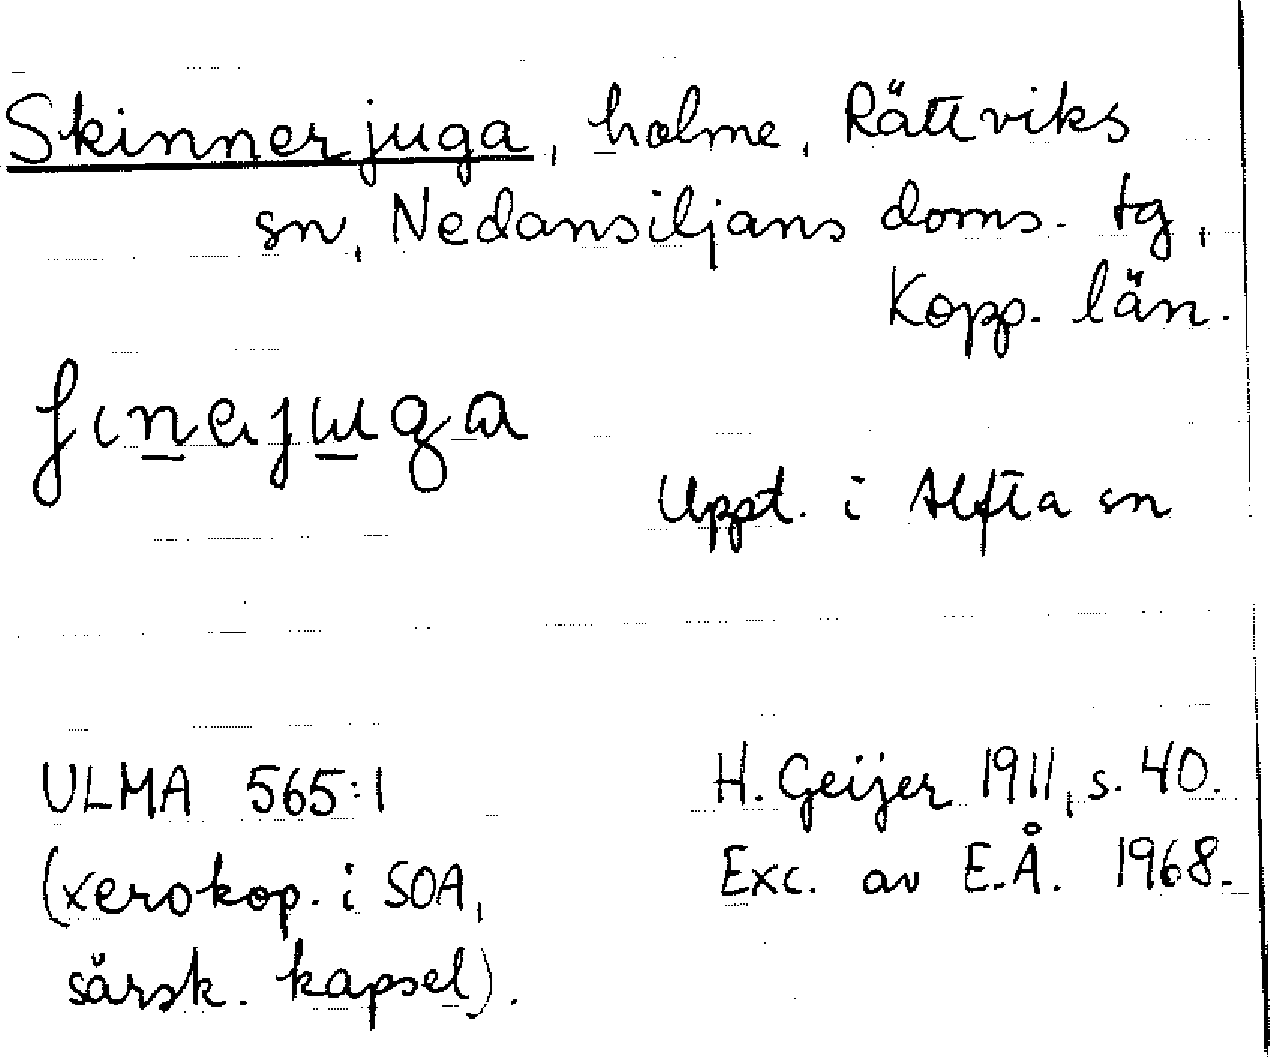 Skinnerjuga, holme, Rättviks
sn, Nedansiljans doms. tg,
Kopp. län.
ʃɩn̲ejɯ̲ga
Uppt. i Alfta sn
ULMA 565:1
(xerokop. i SOA,
särsk. kapsel).
H. Geijer 1911, s. 40.
Exc. av E.Å. 1968.